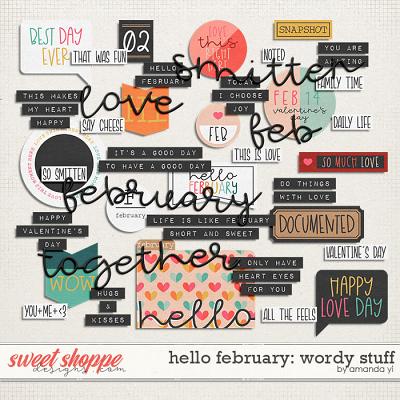 BEST DAY
EVER
THAT WAS FUN
02
HELLO
FEBRUARY
LOVE
this
smitten
SNAPSHOT
NOTED
YOU ARE
AMAZING
FAMILY TIME
THIS MAKES
MY HEART
HAPPY
love
SAY CHEESE
TODAY
I CHOOSE
JOY
FEB 14
valentine's
day
DAILY LIFE
FEB
feb
IT'S A GOOD DAY
TO HAVE A GOOD DAY
THIS IS LOVE
SO MUCH LOVE
SO SMITTEN
hello
FEBRUARY
february
february
DO THINGS
WITH LOVE
HAPPY
VALENTINE'S
DAY
LIFE IS LIKE FEBRUARY
SHORT AND SWEET
DOCUMENTED
february
together
VALENTINE'S DAY
WOW
I ONLY HAVE
HEART EYES
FOR YOU
YOU+ME=<3
HUGS
&
KISSES
hello
ALL THE FEELS
HAPPY
LOVE DAY
sweet shoppe
designs.com
hello february: wordy stuff
by amanda yi